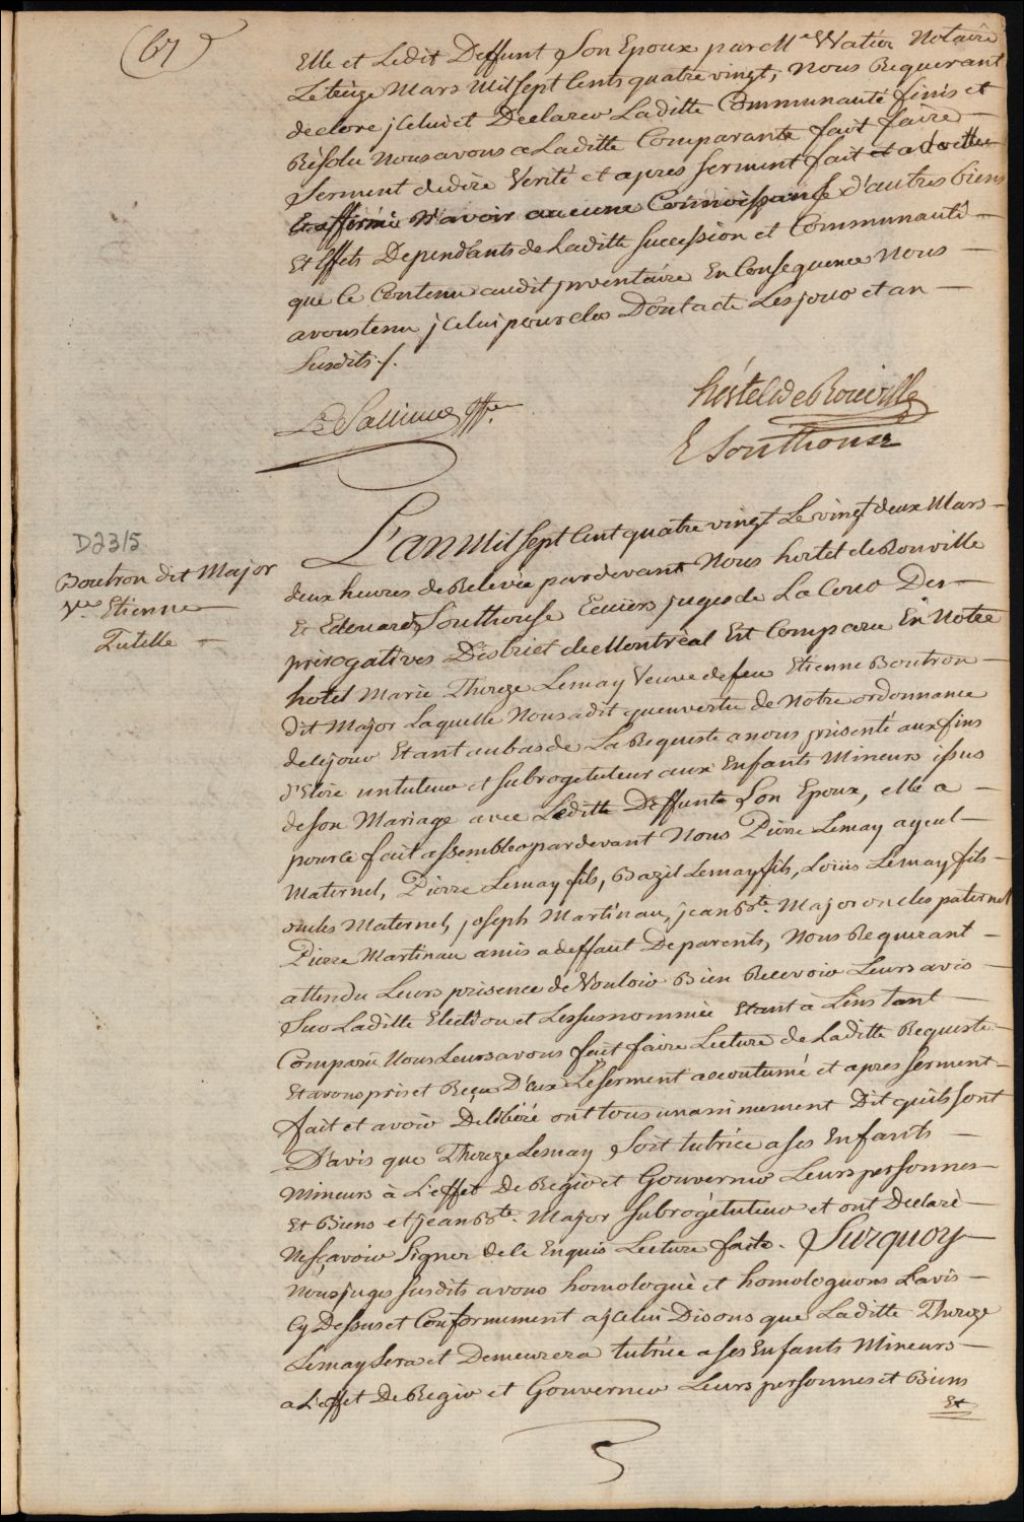 (67)
Elle et Ledit Deffunt Son Epoux par Me Watier Notaire
Le treize Mars Mil sept Cents quatre vingt, Nous Requerant
de clore jcelui et Declarer Laditte Communauté finis et
Résolu Nous avons a Laditte Comparante fait faire
Serment de dire Verité et apres serment fait et
affirmé N'avoir aucune Connoissance d'autres biens
Et Effets Dependants de Laditte Succession et Communauté
que le Contenu audit jnventaire En Consequence Nous
avons tenu jcelui pour clos Dont acte Les jour et an
Susdits ./.
hertel de Rouville
E Southouse
D2315
Boutron dit Major
Ve Etienne
Tutelle
L'an Mil sept Cent quatre vingt Le vingt deux Mars
deux heures de Relevée pardevant Nous hertel de Rouville
Et Edouard Southouse Ecuiers juges de La Cour Des
prérogatives District de Montréal Est Comparu En Notre
hotel Marie Thereze Lemay Veuve de feu Etienne Boutron
dit Major Laquelle Nous a dit qu'en vertu de Notre ordonnance
de ce jour Etant au bas de La Requeste a nous présenté aux fins
d'Elire un tuteur et subrogé tuteur aux Enfants Mineurs issus
de son Mariage avec Leditte Deffunte Son Epoux, elle a
pour ce fait assembler pardevant Nous Pierre Lemay ayeul
Maternel, Pierre Lemay fils, Bazil Lemay fils, Loüis Lemay fils
oncles Maternel, joseph Martinau, jean Bte. Major oncles paternel
Pierre Martinau amis a deffaut De parents, Nous Requerant
attendu Leurs présence de Vouloir Bien Recevoir Leurs avis
Sur Laditte Election et Les susnommée Etant à L'instant
Comparü Nous Leurs avons fait faire Lecture de Laditte Requeste
Et avons pris et Reçu D'eux Le serment accoutumé et apres serment
fait et avoir Deliberé ont tous unanimement Dit qu'ils sont
D'avis que Thereze Lemay Soit tutrice a ses Enfants
Mineurs à L'effet De Regir et Gouverner Leurs personnes
Et Biens et jean Bte. Major subrogé tuteur et ont Declaré
Ne sçavoir Signer de ce Enquis Lecture faite. Surquoy
Nous juges susdits avons homologué et homologuons L'avis
Cy Dessus et Conformement a jcelui Disons que Laditte Thereze
Lemay Sera et Demeurera tutrice a ses Enfants Mineurs
a L'effet De Regir et Gouverner Leurs personnes et Biens
Et